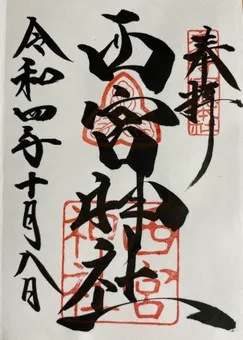 奉拝
西宮神社
西宮
神社
令和四年十月八日